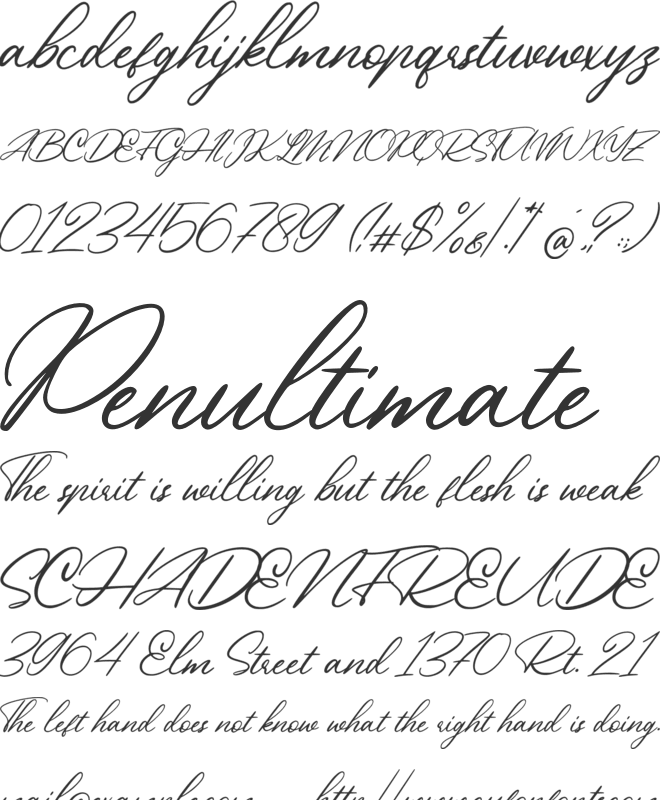 abcdefghijklmnopqrstuvwxyz
ABCDEFGHIJKLMNOPQRSTUVWXYZ
0123456789 (!#$%&|.*) @,;?:;)
Penultimate
The spirit is willing but the flesh is weak
SCHADENFREUDE
3964 Elm Street and 1370 Rt. 21
The left hand does not know what the right hand is doing.